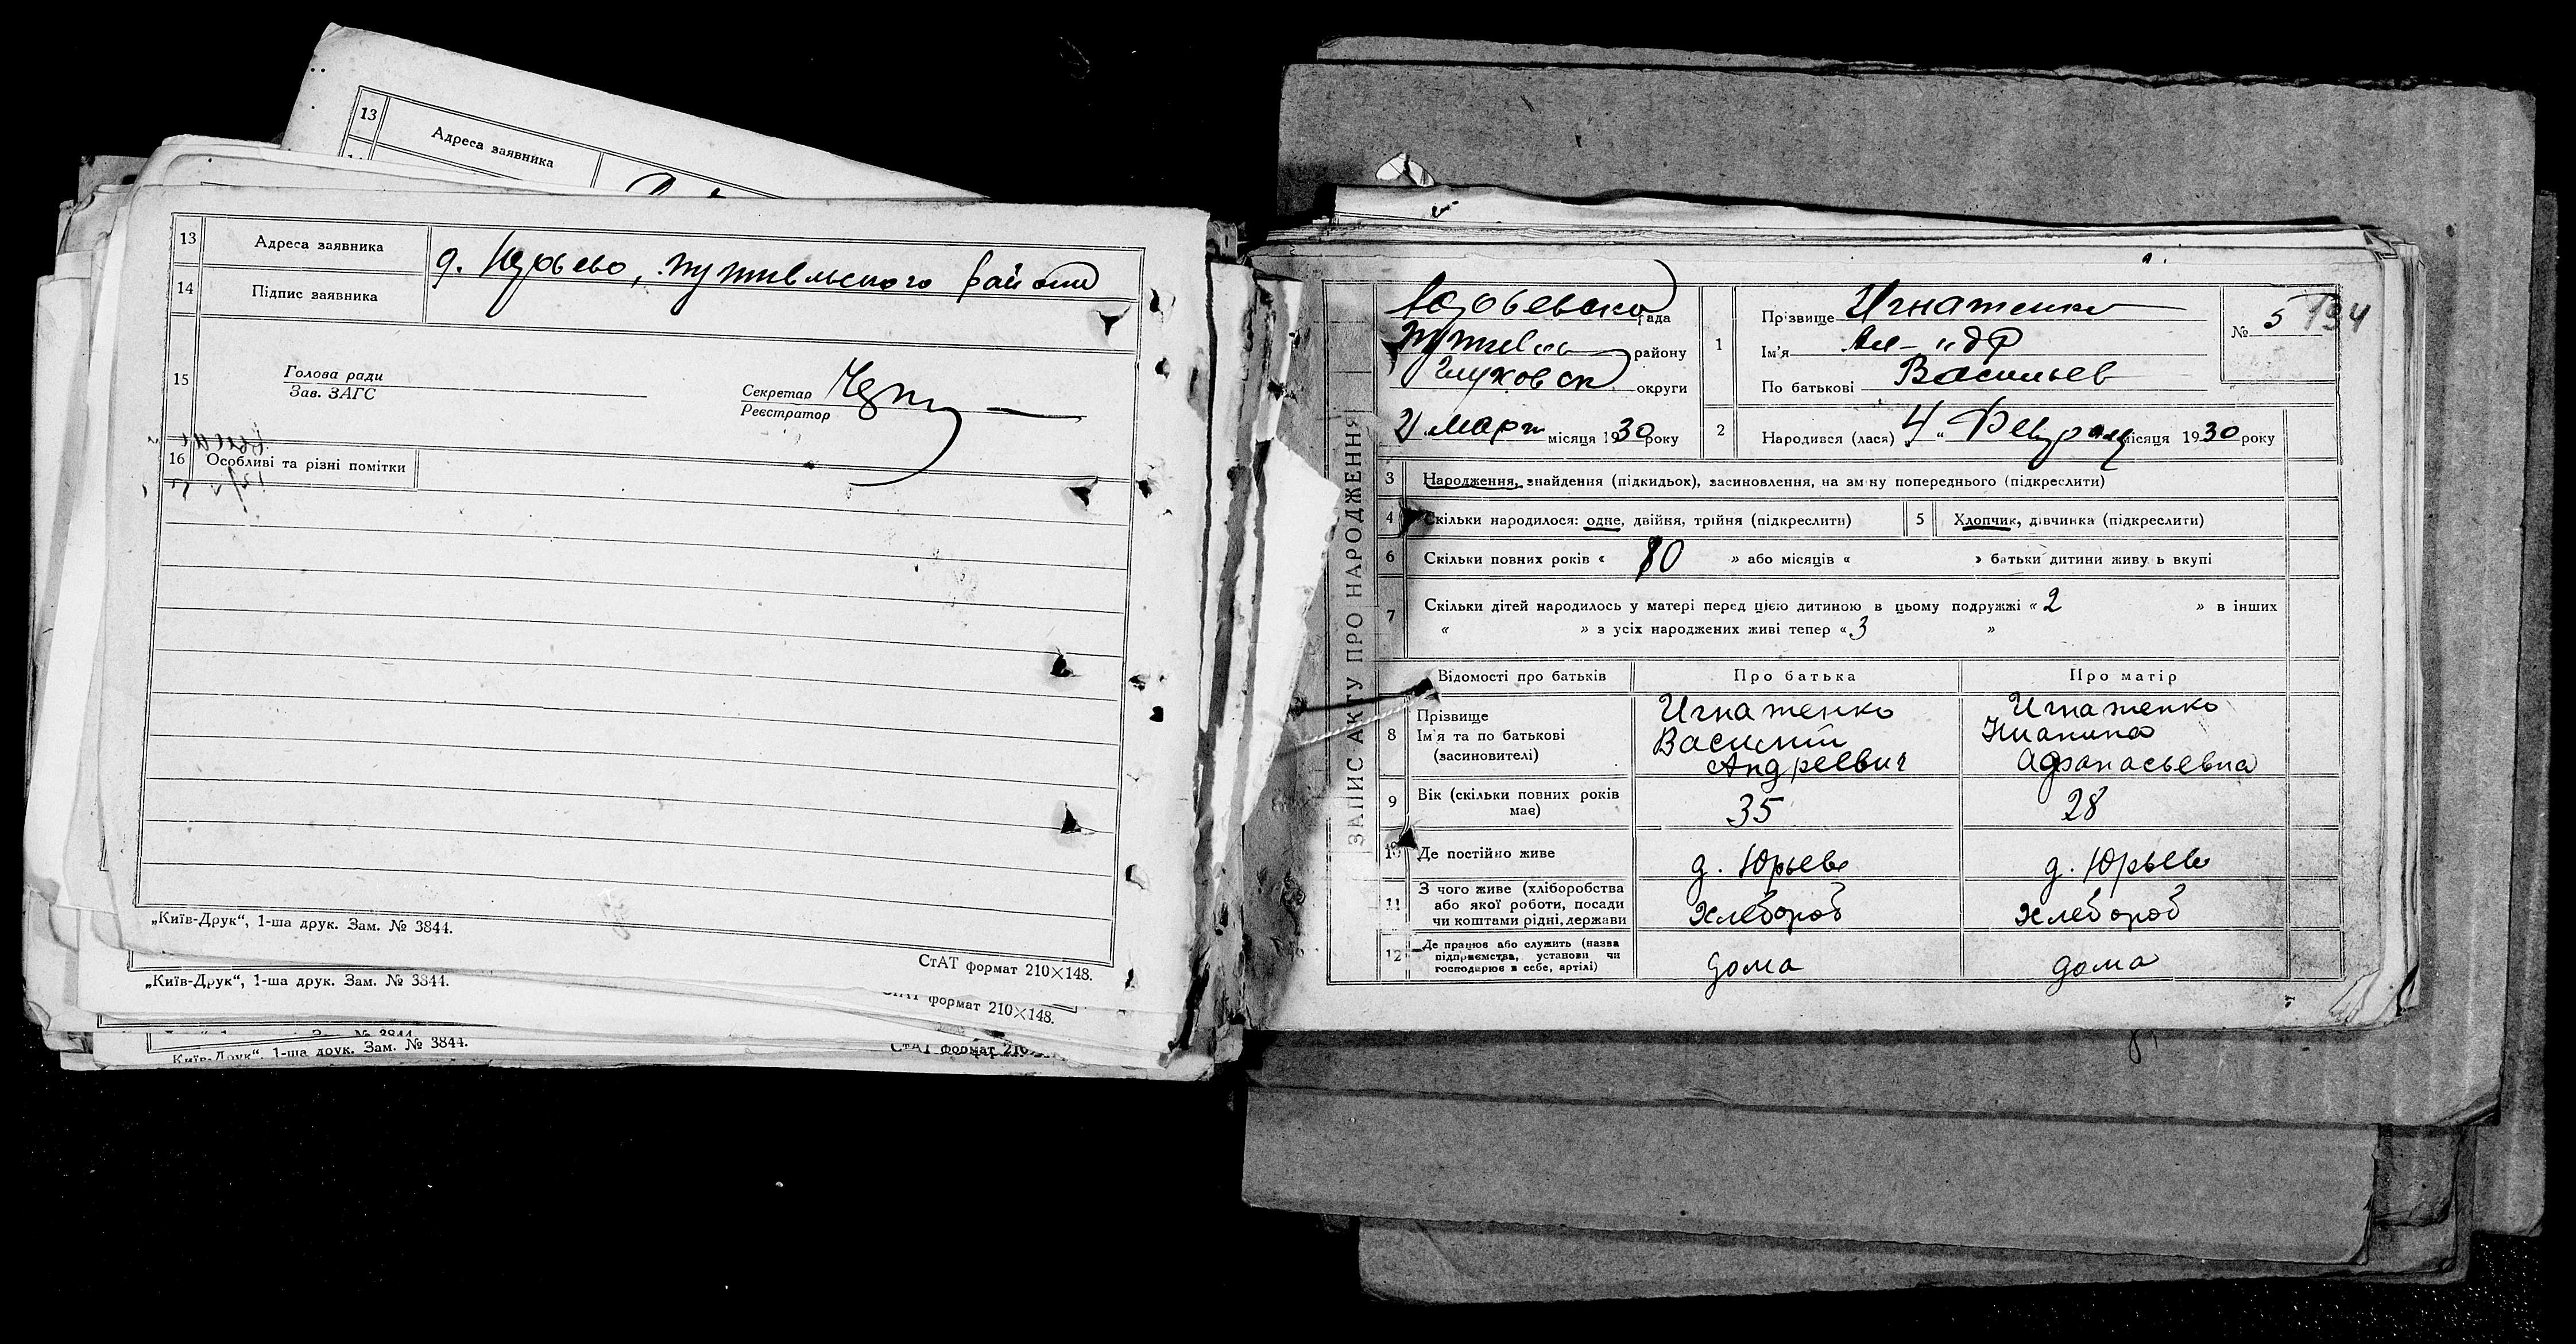 13
Адреса заявника
13
Адреса заявника
д. Юрьево, путивльского района
14
Підпис заявника
15
Голова ради
Зав. ЗАГС
Секретар
Реєстратор
16
Особливі та різні помітки
„Київ-Друк“, 1-ша друк. Зам. № 3844.
СтАТ формат 210×148.
„Київ-Друк“, 1-ша друк. Зам. № 3844.
формат 210×148.
Київ-Друк“, 1-ша друк. Зам. № 3844.
СтАТ формат 210
ЗАПИС АКТУ ПРО НАРОДЖЕННЯ
Юрьевска рада
Путивль району
Глуховск округи
21 март місяця 1930 року
1
Прізвище Игнатенко
Ім'я Ал-"др
По батькові Васильев
№ 5
134
2
Народився (лася) „4“ Февраля місяця 1930 року
3
Народження, знайдення (підкидьок), засиновлення, на зміну попереднього (підкреслити)
4
Скільки народилося: одне, двійня, трійня (підкреслити)
5
Хлопчик, дівчинка (підкреслити)
6
Скільки повних років « 10 » або місяців « » батьки дитини живуть вкупі
7
Скільки дітей народилось у матері перед цією дитиною в цьому подружжі « 2 » в інших
« » з усіх народжених живі тепер « 3 »
Відомості про батьків
Про батька
Про матір
8
Прізвище
Ім'я та по батькові
(засиновителі)
Игнатенко
Василий
Андреевич
Игнатенко
Афанасьевна
9
Вік (скільки повних років має)
35
28
10
Де постійно живе
д. Юрьеве
д. Юрьеве
11
З чого живе (хліборобства
або якої роботи, посади
чи коштами рідні, держави
хлебороб
хлебороб
12
Де працює або служить (назва
підприємства, установи чи
господарює в себе, артілі)
дома
дома